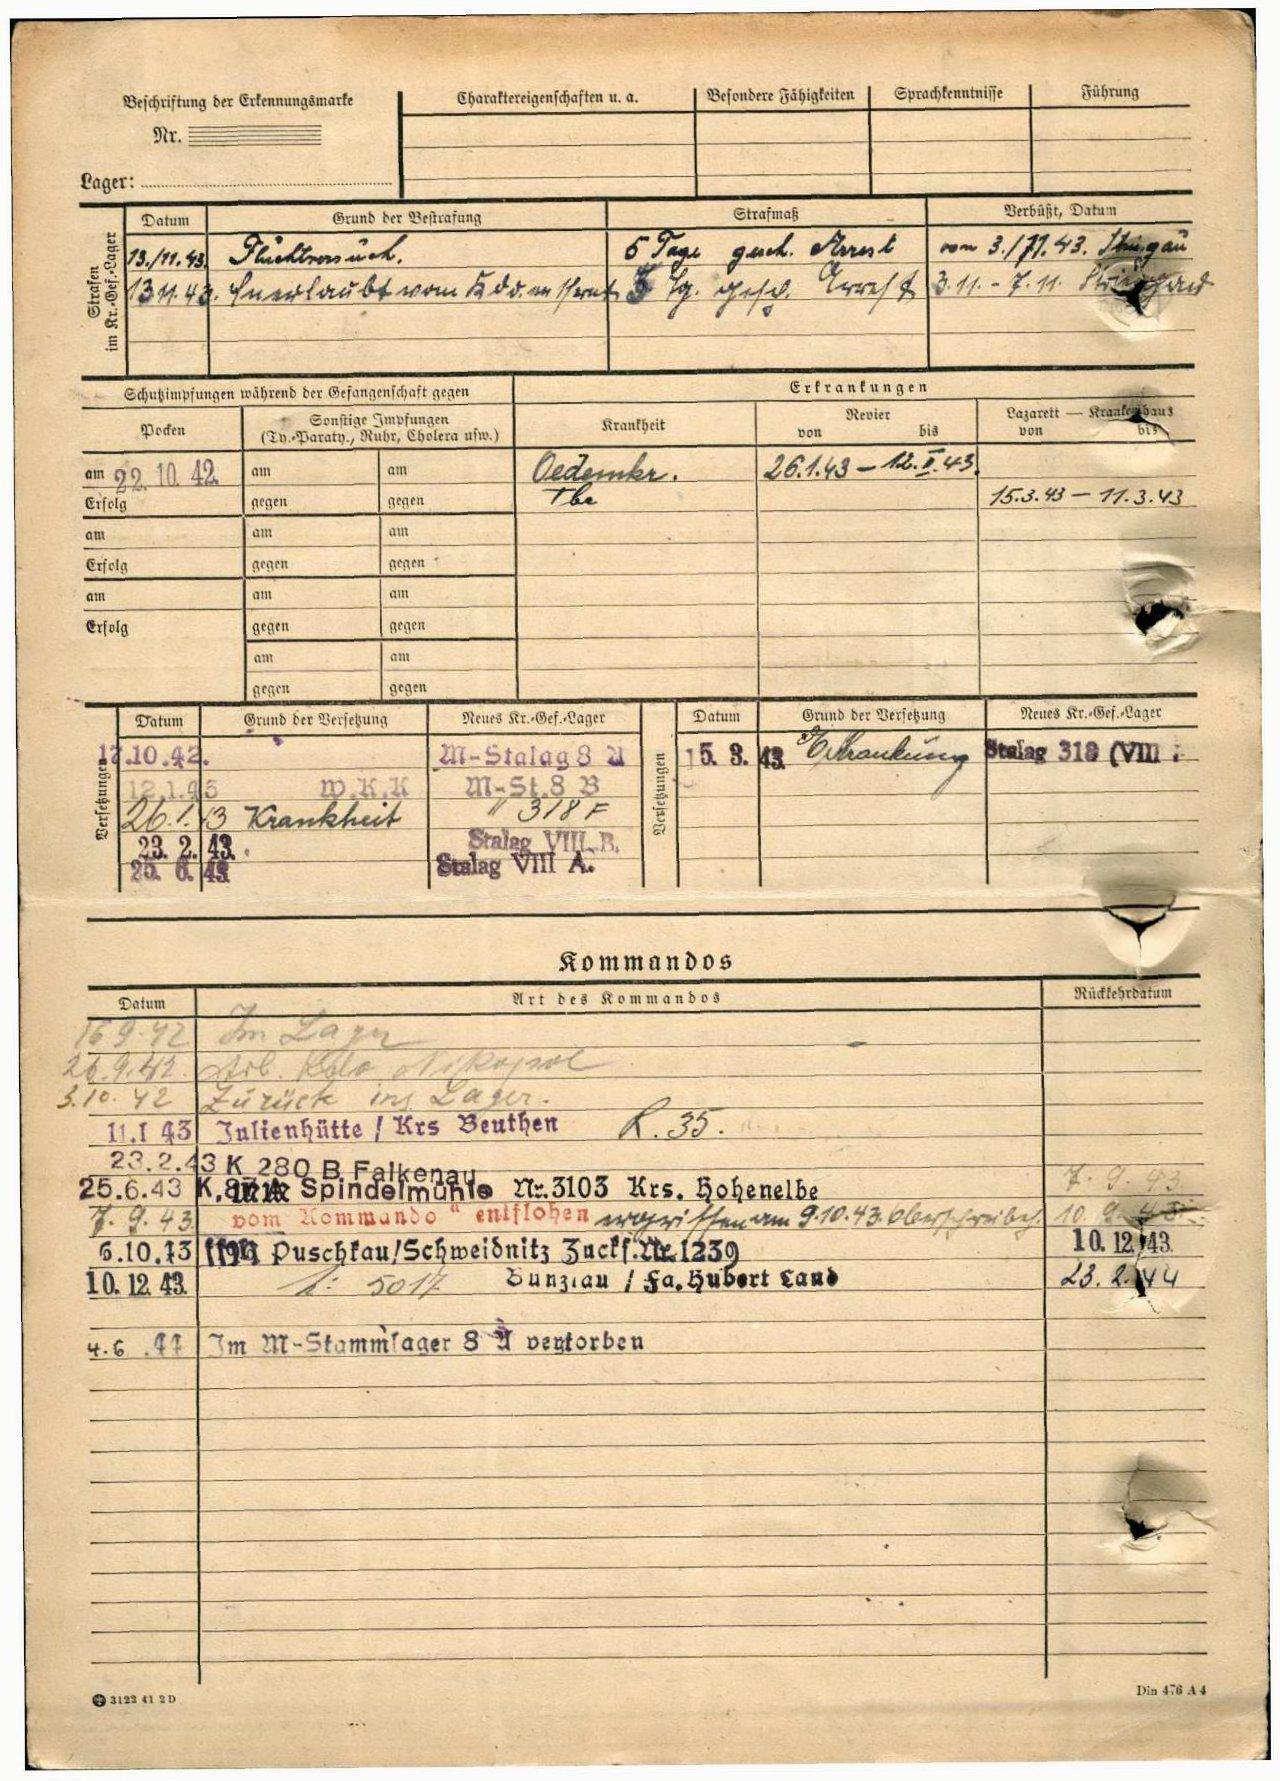 Beschriftung der Erkennungsmarke
Nr.
Lager:
Charaktereigenschaften u. a.
Besondere Fähigkeiten
Sprachkenntnisse
Führung
Strafen im Kr.-Gef.-Lager
Datum Grund der Bestrafung Strafmaß Verbüßt, Datum
13./11.43. Fluchtversuch. 5 Tage gesch. Arrest vom 3./11.43.
13.11.43. Unerlaubt vom Kdo. entfernt 5 Tg. gesch. Arrest 3.11. - 7.11.
Schutzimpfungen während der Gefangenschaft gegen
Erkrankungen
Pocken
Sonstige Impfungen
(Ty.-Paraty., Ruhr, Cholera usw.)
Krankheit
Revier
von bis
Lazarett — Krankenhaus
von bis
am 22. 10. 42. am am Oedemkr. 26.1.43 – 12.II.43.
Erfolg gegen gegen Tbc 15.3.43 – 11.3.43
am am am
Erfolg gegen gegen
am am am
Erfolg gegen gegen
am am
gegen gegen
Versetzungen
Datum Grund der Versetzung Neues Kr.-Gef.-Lager
17.10.42. M-Stalag 8 A
12.1.43 W.K.K M-St. 8 B
26.1.43 Krankheit " 318 F
23. 2. 43. Stalag VIII B.
25. 6. 43 Stalag VIII A.
Versetzungen
Datum Grund der Versetzung Neues Kr.-Gef.-Lager
15. 3. 43. Erkrankung Stalag 318 (VIII
Kommandos
Datum Art des Kommandos Rückkehrdatum
16.9.42 Im Lager
26.9.42. Arb. Kdo Nikopol
3.10.42 Zurück ins Lager.
11.I 43 Julienhütte / Krs Beuthen R. 35.
23.2.43 K 280 B Falkenau
25.6.43 K. Spindelmühle Nr. 3103 Krs. Hohenelbe 7.9.43.
7.9.43. vom Kommando entflohen ergriffen am 9.10.43. 10.9.43.
6.10.43 Puschkau/Schweidnitz Zuckf. Nr. 1239 10. 12. 43.
10. 12. 43. 5017 Bunzlau / Fa. Hubert Land 23. 2. 44
4.6 .44 Im M-Stammlager 8 A verstorben
3122 41 2 D
Din 476 A 4